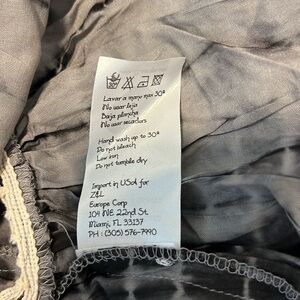 Lavar a mano max 30°
No usar lejia
Baja plancha
No usar secadora
Hand wash up to 30°
Do not bleach
Low iron
Do not tumble dry
Import in USof for
Z&L
Europe Corp
109 NE 22nd St.
Miami, FL 33137
PH : (305) 576-7990